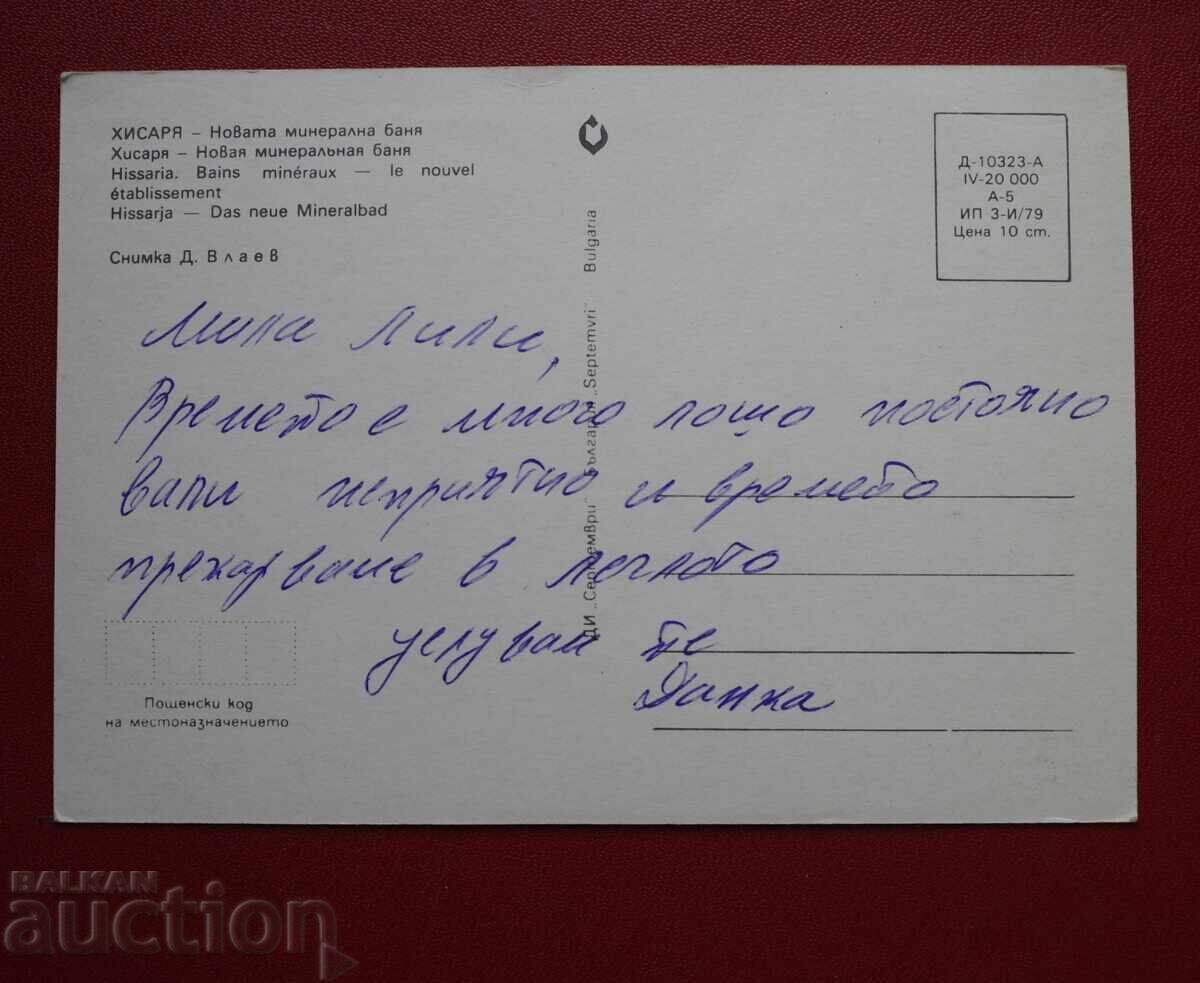 ХИСАРЯ – Новата минерална баня
Хисаря – Новая минеральная баня
Hissaria. Bains minéraux — le nouvel
établissement
Hissarja — Das neue Mineralbad
Снимка Д. Влаев
Мила Лили,
Времето е много лошо постояно
вали неприятно и времето
прекарваме в леглото
целувам те
Данка
Пощенски код
на местоназначението
ДИ „Септември“ България „Septemvri“ Bulgaria
Д-10323-А
IV-20 000
А-5
ИП 3-И/79
Цена 10 ст.
BALKAN
auction